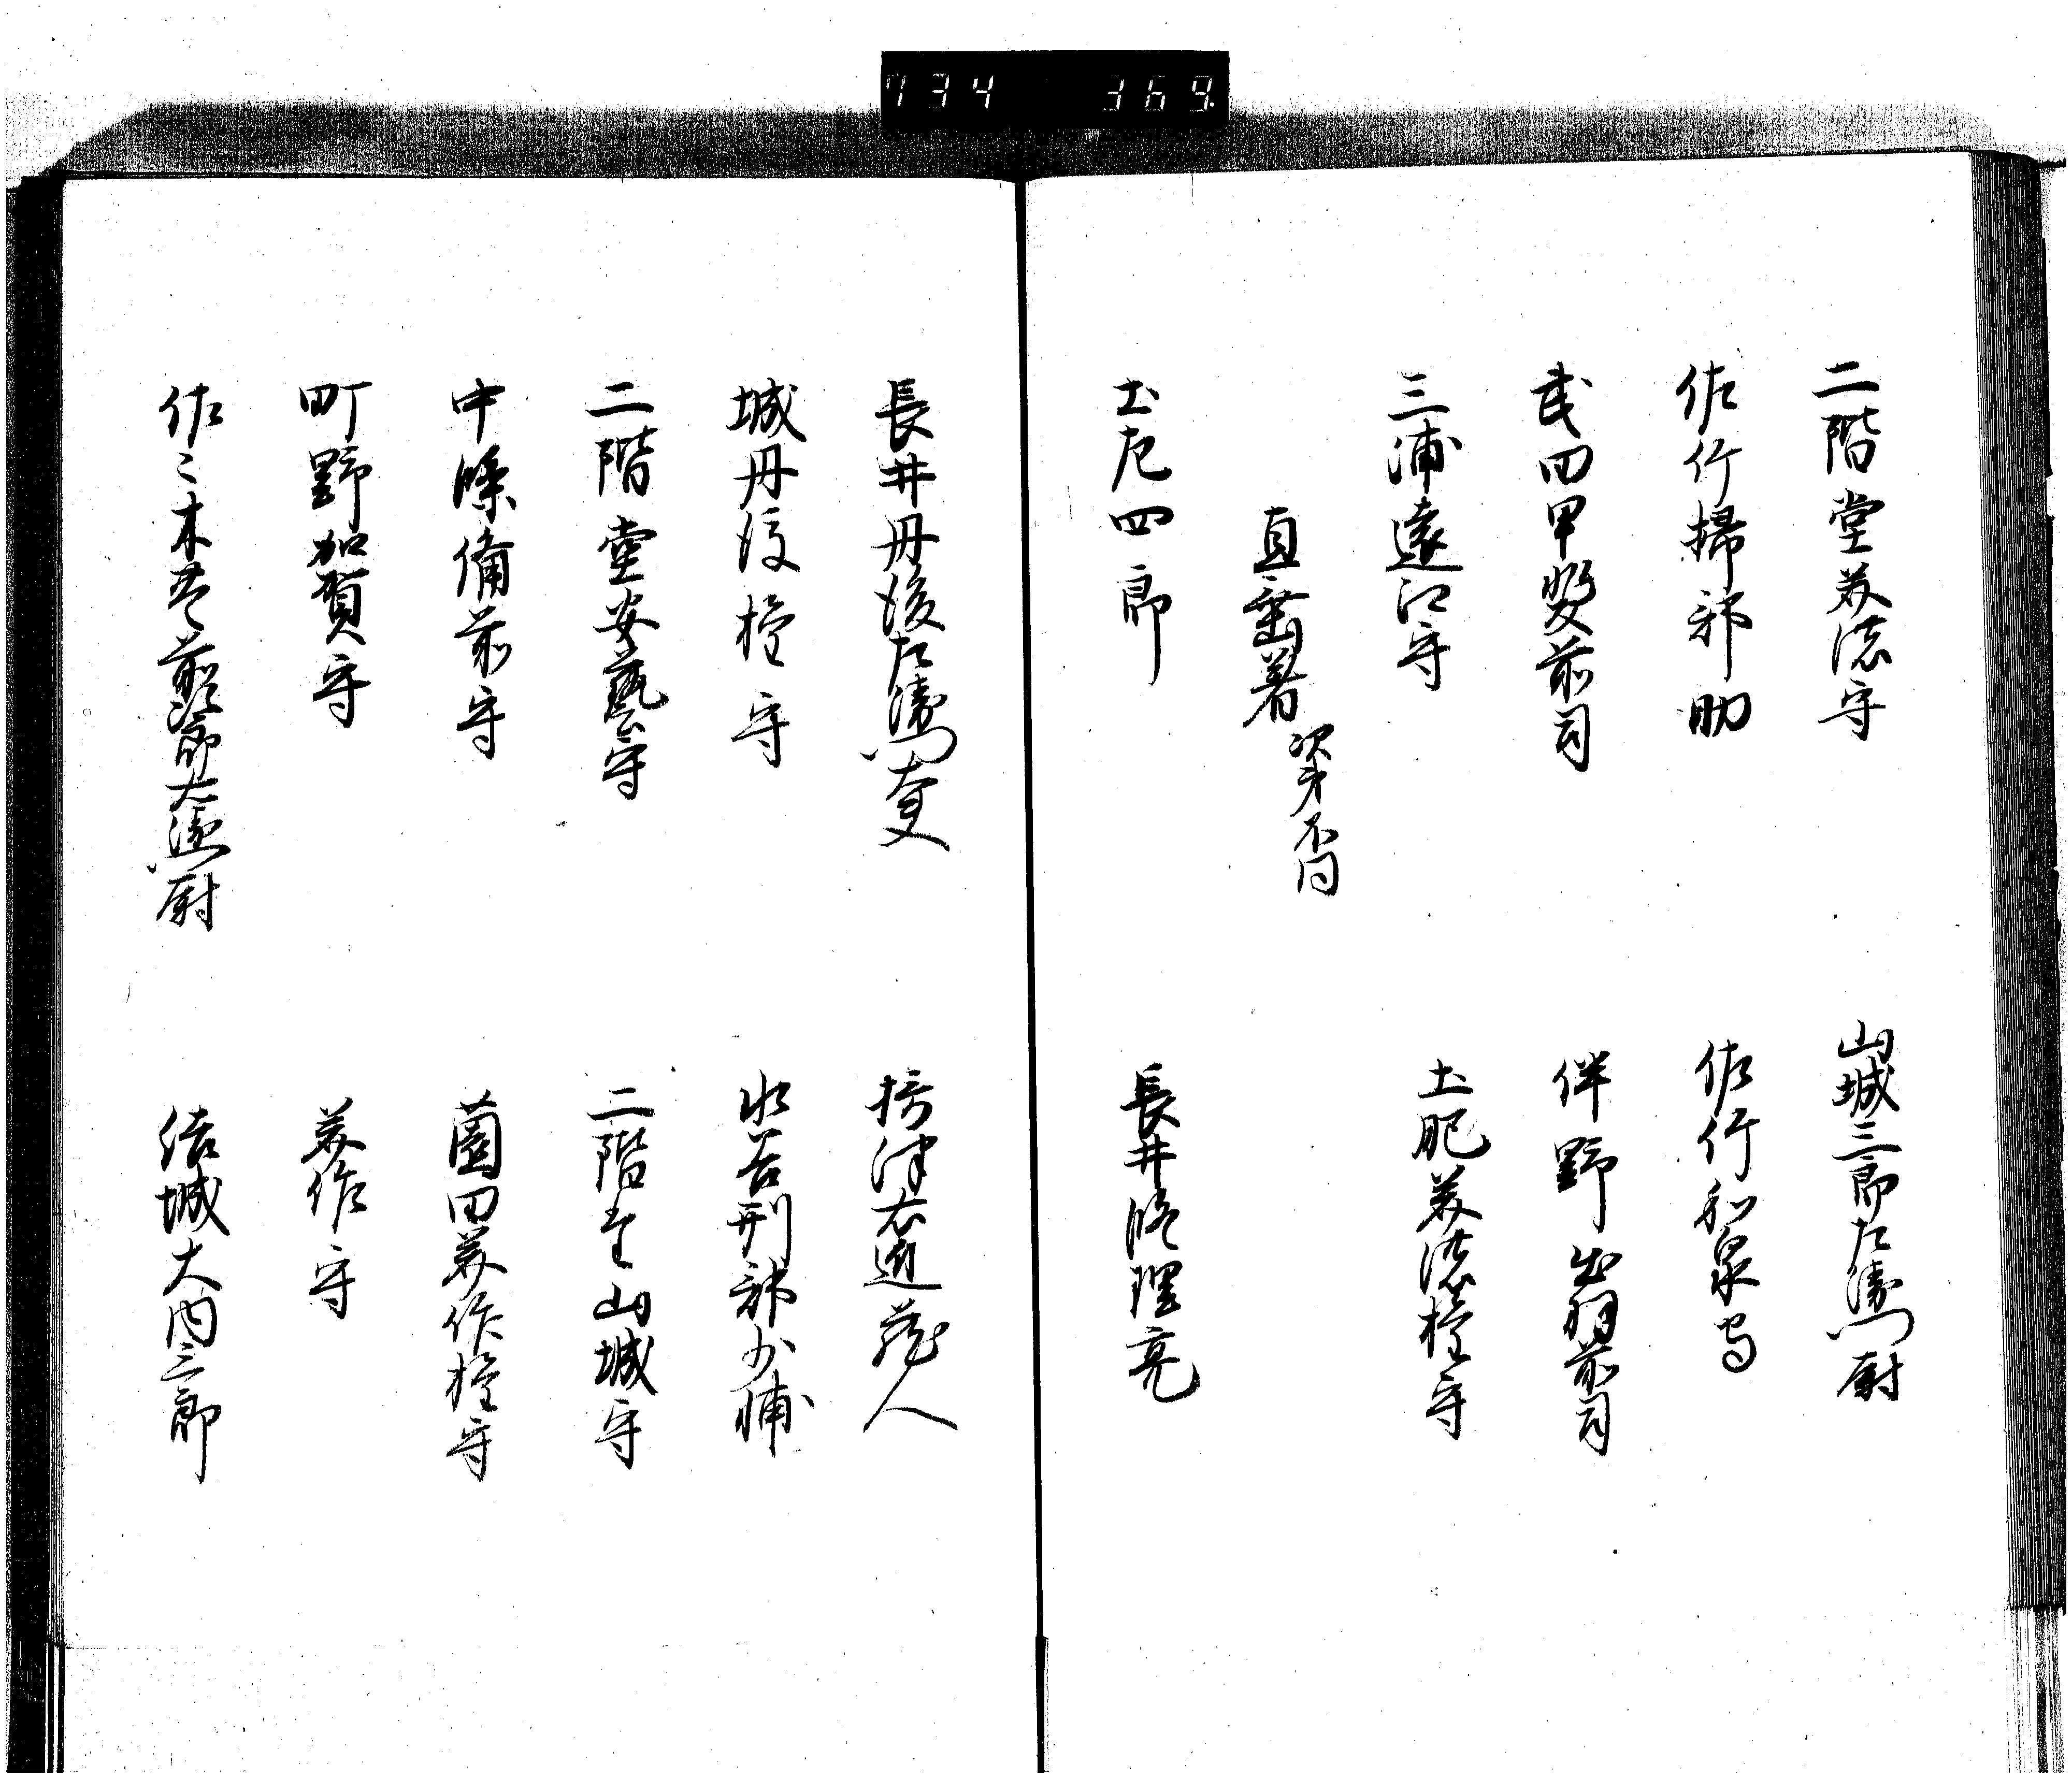 734 369
二階堂美濃守 山城三郎左衛門尉
佐竹掃部助 佐竹和泉守
武田甲斐前司 伴野出羽前司
三浦遠江守 土肥美濃権守
直垂着 次第不同
土左四郎 長井修理亮
長井丹後左衛門大夫 摂津右近蔵人
城丹後権守 水谷刑部少輔
二階堂安藝守 二階堂山城守
中條備前守 薗田美作権守
町野加賀守 美作守
佐々木 前 郎左衛門尉 結城大内三郎